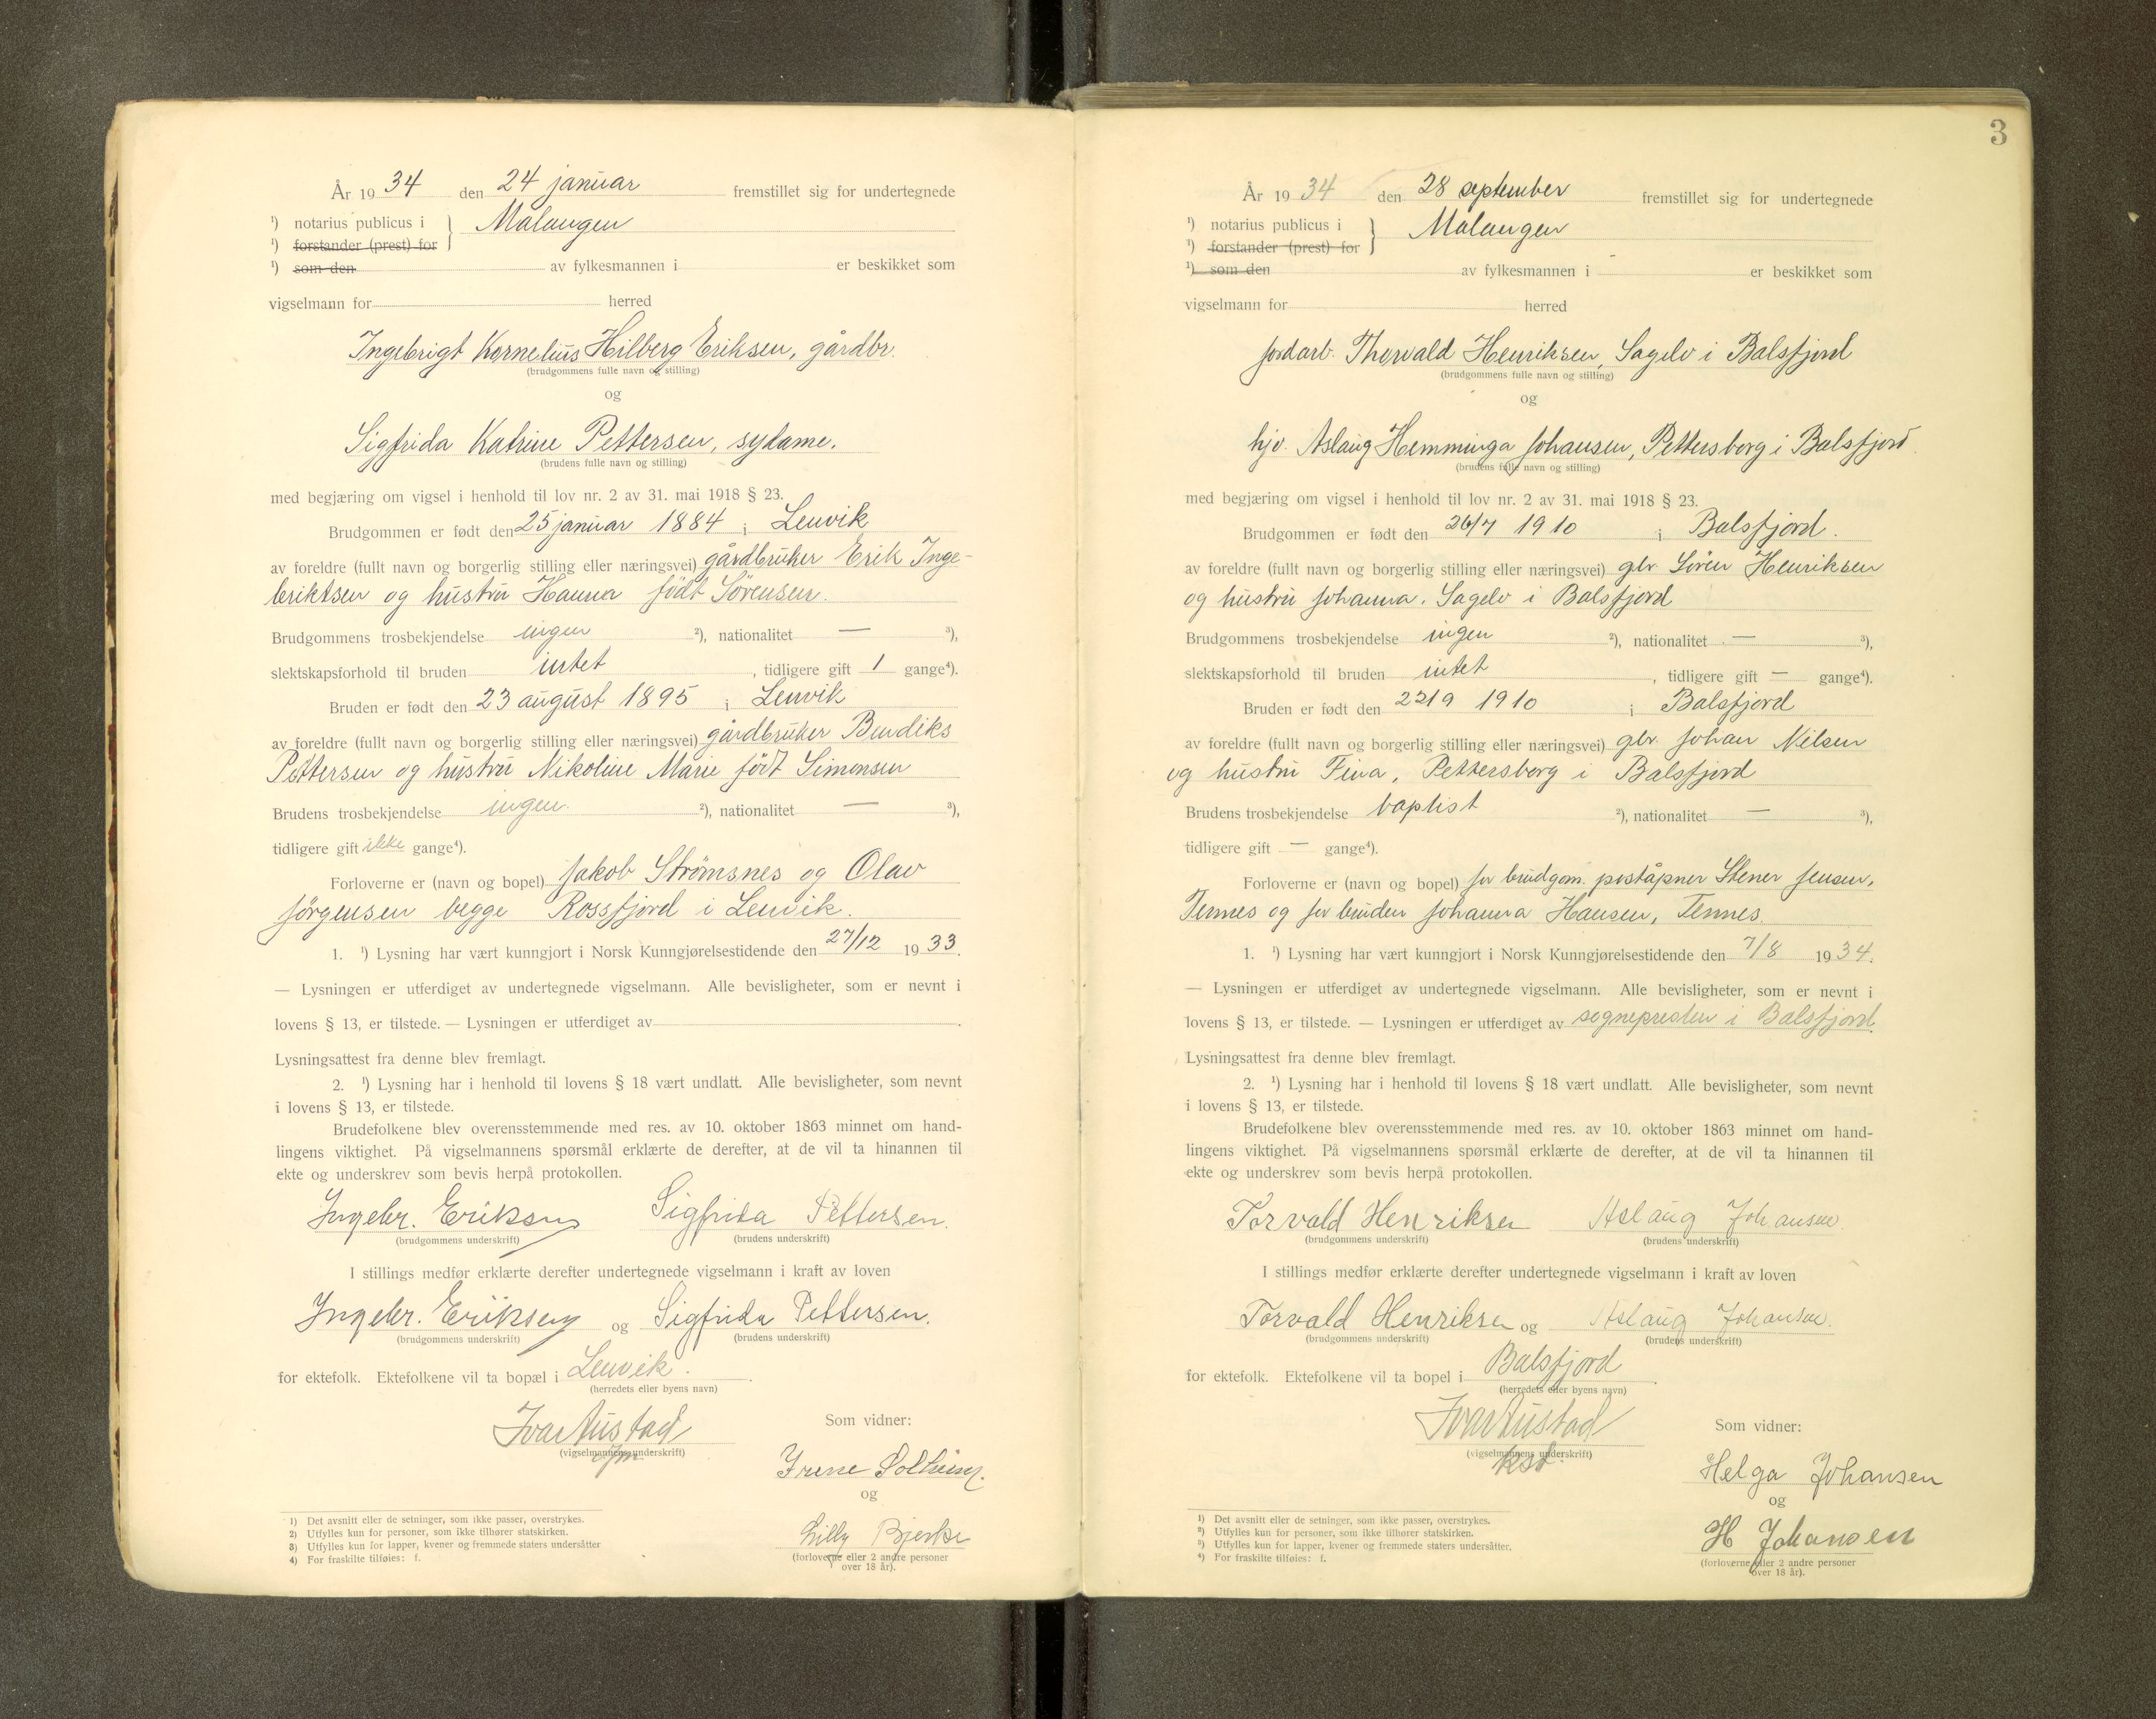 År 1934 den 24 januar fremstillet sig for undertegnede
¹) notarius publicus i } Malangen
¹) forstander (prest) for
¹) som den av fylkesmannen i er beskikket som
vigselmann for herred
Ingebrigt Kornelius Hilberg Eriksen, gårdbr.
(brudgommens fulle navn og stilling)
og
Sigfrida Katrine Pettersen, sydame.
(brudens fulle navn og stilling)
med begjæring om vigsel i henhold til lov nr. 2 av 31. mai 1918 § 23.
Brudgommen er født den 25 januar 1884 i Lenvik
av foreldre (fullt navn og borgerlig stilling eller næringsvei) gårdbruker Erik Inge-
briktsen og hustru Hanna født Sörensen.
Brudgommens trosbekjendelse ingen ²), nationalitet — ³),
slektskapsforhold til bruden intet, tidligere gift 1 gange⁴).
Bruden er født den 23 august 1895 i Lenvik
av foreldre (fullt navn og borgerlig stilling eller næringsvei) gårdbruker Bendiks
Pettersen og hustru Nikoline Marie født Simonsen
Brudens trosbekjendelse ingen. ²), nationalitet — ³),
tidligere gift ikke gange⁴).
Forloverne er (navn og bopel) Jakob Strømsnes og Olav
Jørgensen begge Rossfjord i Lenvik.
1. ¹) Lysning har vært kunngjort i Norsk Kunngjørelsestidende den 27/12 1933.
— Lysningen er utferdiget av undertegnede vigselmann. Alle bevisligheter, som er nevnt i
lovens § 13, er tilstede. — Lysningen er utferdiget av .
Lysningsattest fra denne blev fremlagt.
2. ¹) Lysning har i henhold til lovens § 18 vært undlatt. Alle bevisligheter, som nevnt
i lovens § 13, er tilstede.
Brudefolkene blev overensstemmende med res. av 10. oktober 1863 minnet om hand-
lingens viktighet. På vigselmannens spørsmål erklærte de derefter, at de vil ta hinannen til
ekte og underskrev som bevis herpå protokollen.
Ingebr. Eriksen Sigfrida Pettersen.
(brudgommens underskrift) (brudens underskrift)
I stillings medfør erklærte derefter undertegnede vigselmann i kraft av loven
Ingebr. Eriksen og Sigfrida Pettersen.
(brudgommens underskrift) (brudens underskrift)
for ektefolk. Ektefolkene vil ta bopæl i Lenvik.
(herredets eller byens navn)
Ivar Austad
(vigselmannens underskrift)
Som vidner:
Irene Solheim.
og
Lilly Bjerke
(forloverne eller 2 andre personer
over 18 år).
1) Det avsnitt eller de setninger, som ikke passer, overstrykes.
2) Utfylles kun for personer, som ikke tilhører statskirken.
3) Utfylles kun for lapper, kvener og fremmede staters undersåtter
4) For fraskilte tilføies: f.
3
År 1934 den 28 september fremstillet sig for undertegnede
¹) notarius publicus i } Malangen
¹) forstander (prest) for
¹) som den av fylkesmannen i er beskikket som
vigselmann for herred
jordarb. Thorvald Henriksen, Sagelv i Balsfjord
(brudgommens fulle navn og stilling)
og
hjv. Aslaug Hemminga Johansen, Pettersborg i Balsfjord.
(brudens fulle navn og stilling)
med begjæring om vigsel i henhold til lov nr. 2 av 31. mai 1918 § 23.
Brudgommen er født den 26/7 1910 i Balsfjord.
av foreldre (fullt navn og borgerlig stilling eller næringsvei) gbr Sören Henriksen
og hustru Johanna. Sagelv i Balsfjord
Brudgommens trosbekjendelse ingen ²), nationalitet — ³),
slektskapsforhold til bruden intet, tidligere gift — gange⁴).
Bruden er født den 22/9 1910 i Balsfjord
av foreldre (fullt navn og borgerlig stilling eller næringsvei) gbr Johan Nilsen
og hustru Fina, Pettersborg i Balsfjord
Brudens trosbekjendelse baptist ²), nationalitet — ³),
tidligere gift — gange⁴).
Forloverne er (navn og bopel) for brudgom. poståpner Stener Jensen,
Tennes og for bruden Johanna Hansen, Tennes.
1. ¹) Lysning har vært kunngjort i Norsk Kunngjørelsestidende den 7/8 1934.
— Lysningen er utferdiget av undertegnede vigselmann. Alle bevisligheter, som er nevnt i
lovens § 13, er tilstede. — Lysningen er utferdiget av sognepresten i Balsfjord.
Lysningsattest fra denne blev fremlagt.
2. ¹) Lysning har i henhold til lovens § 18 vært undlatt. Alle bevisligheter, som nevnt
i lovens § 13, er tilstede.
Brudefolkene blev overensstemmende med res. av 10. oktober 1863 minnet om hand-
lingens viktighet. På vigselmannens spørsmål erklærte de derefter, at de vil ta hinannen til
ekte og underskrev som bevis herpå protokollen.
Torvald Henriksen Aslaug Johansen.
(brudgommens underskrift) (brudens underskrift)
I stillings medfør erklærte derefter undertegnede vigselmann i kraft av loven
Torvald Henriksen og Aslaug Johansen.
(brudgommens underskrift) (brudens underskrift)
for ektefolk. Ektefolkene vil ta bopel i Balsfjord.
(herredets eller byens navn)
Ivar Austad
(vigselmannens underskrift)
kst.
Som vidner:
Helga Johansen
og
H Johansen
(forloverne eller 2 andre personer
over 18 år).
¹) Det avsnitt eller de setninger, som ikke passer, overstrykes.
²) Utfylles kun for personer, som ikke tilhører statskirken.
³) Utfylles kun for lapper, kvener og fremmede staters undersåtter.
⁴) For fraskilte tilføies: f.